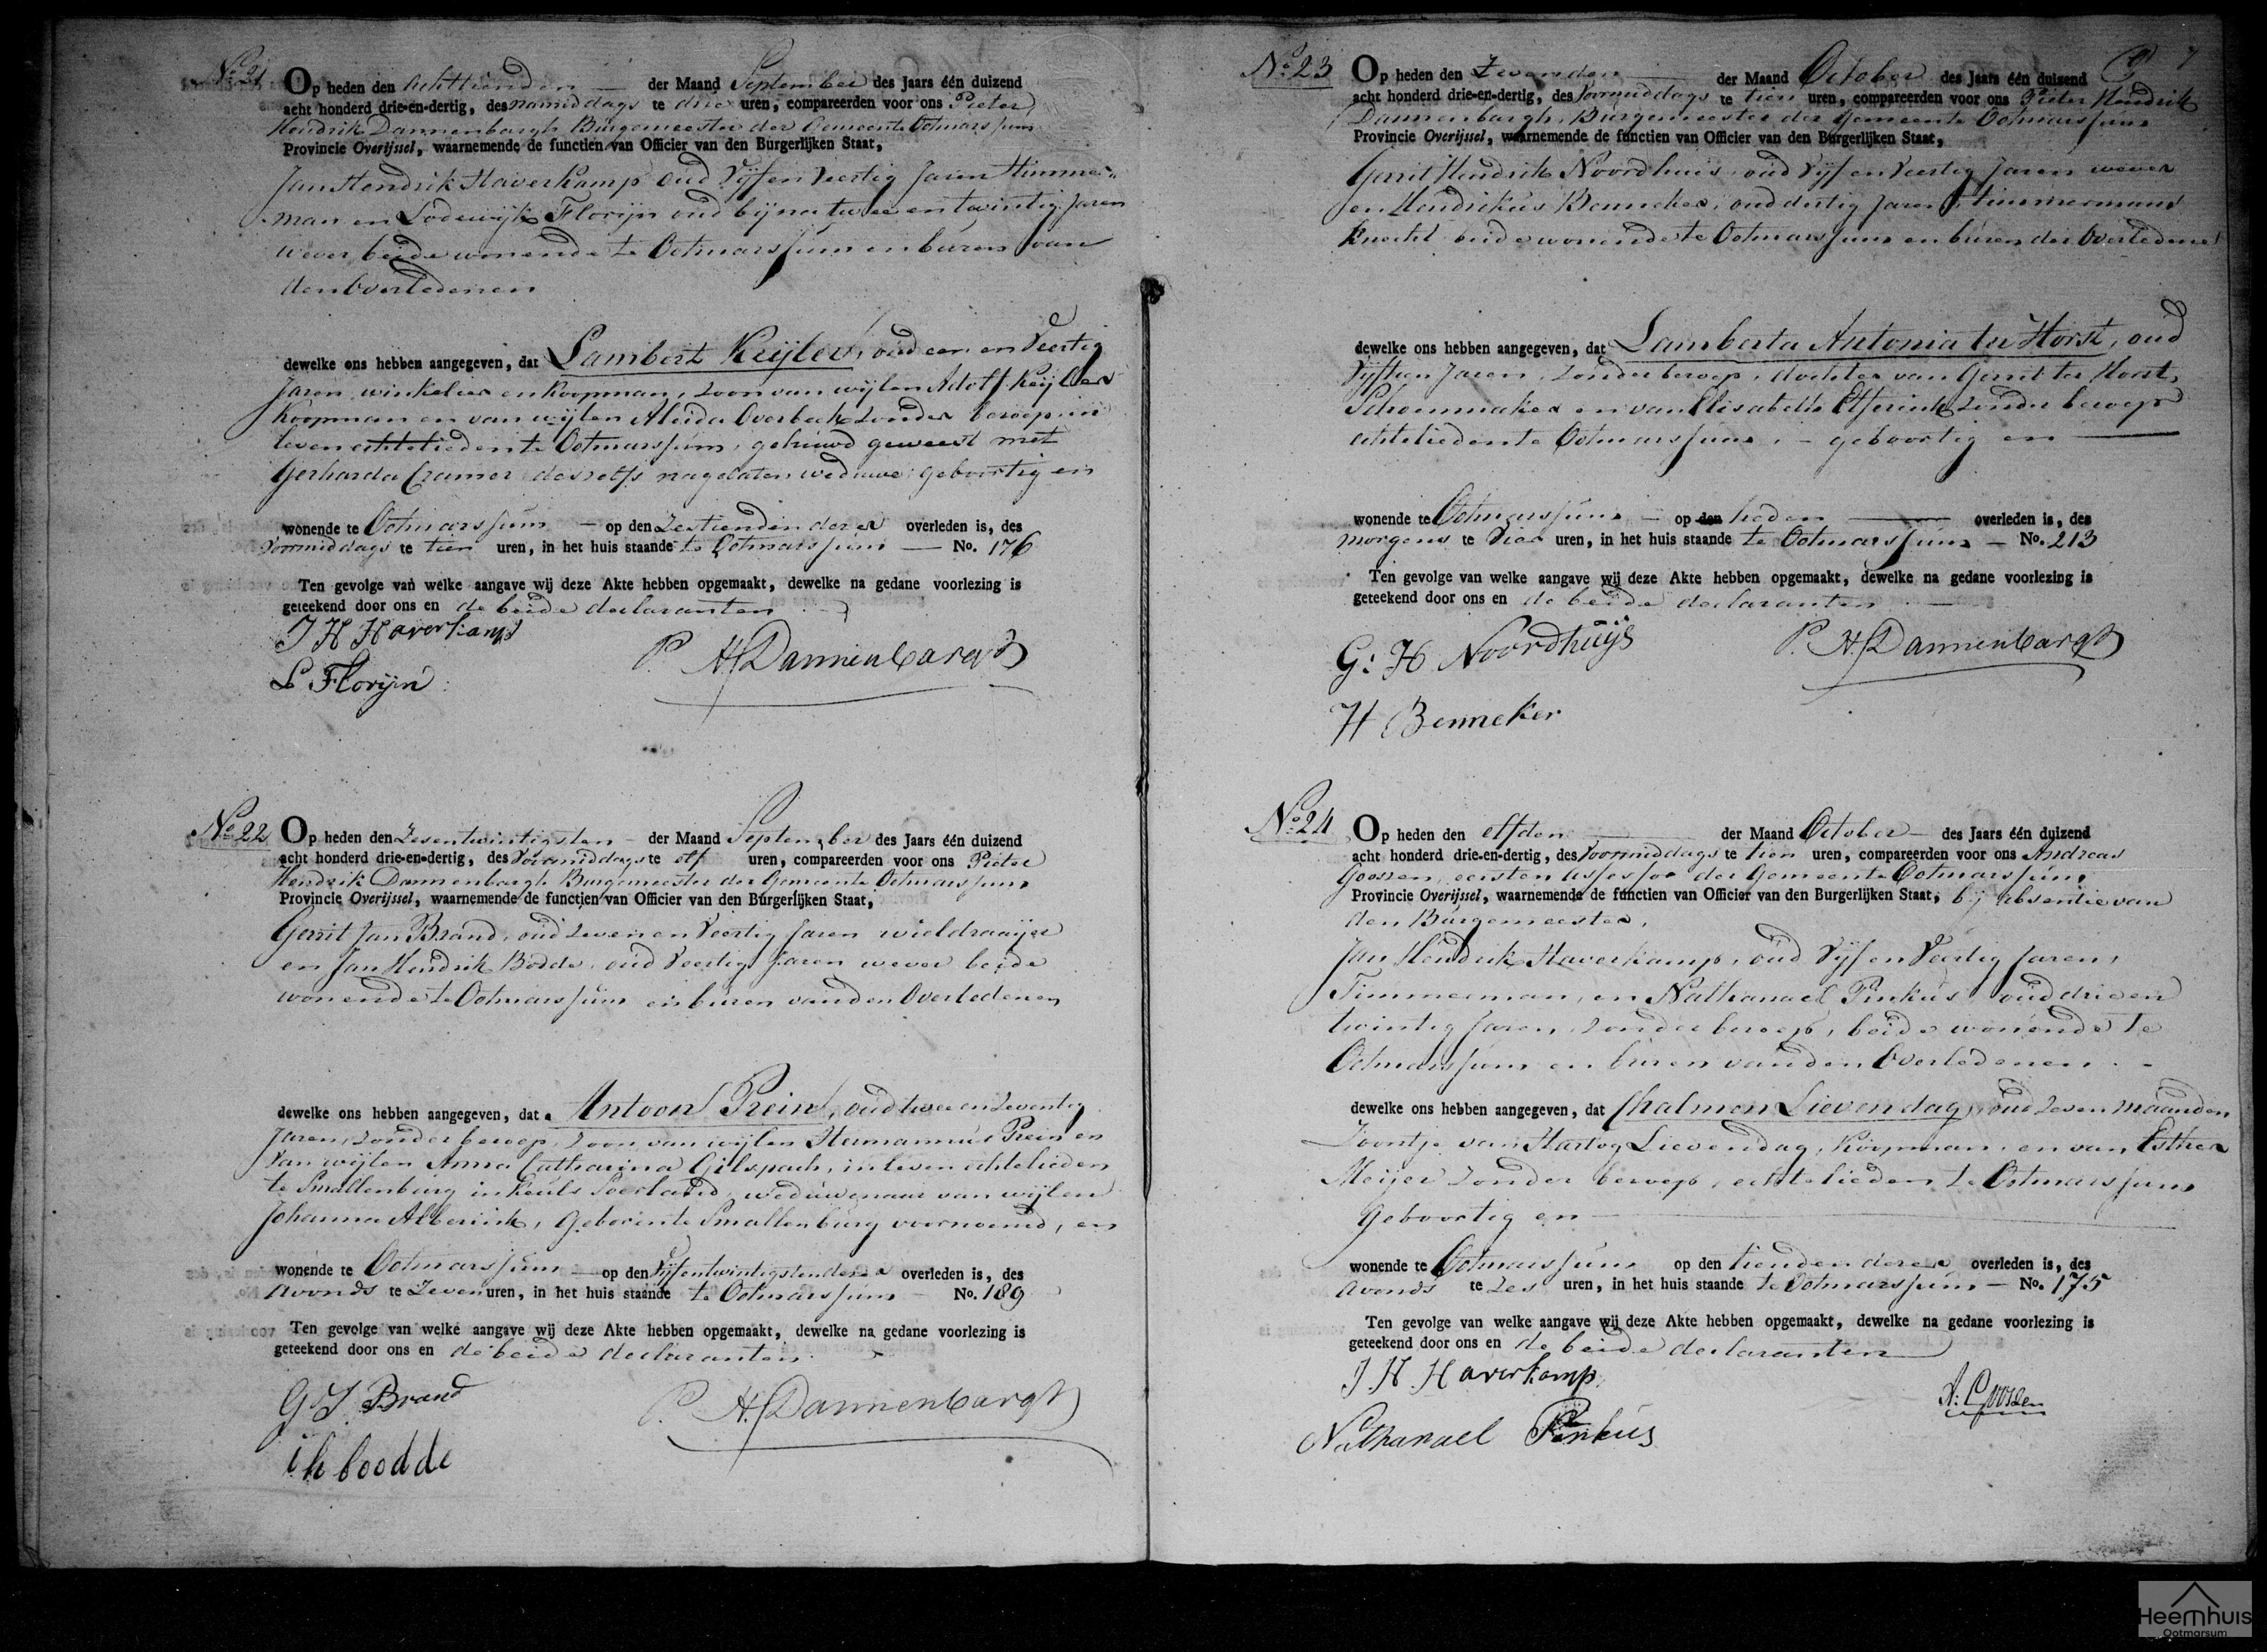 No 21 Op heden den achttienden der Maand September des Jaars één duizend
acht honderd drie-en-dertig, des namiddags te drie uren, compareerden voor ons Pieter
Hendrik Dannenbargh Burgemeester der Gemeente Ootmarssum
Provincie Overijssel, waarnemende de functien van Officier van den Burgerlijken Staat,
Jan Hendrik Haverkamp oud Vijf en Veertig Jaren Timmer-
man en Lodewijk Florijn oud bijna twee en twintig Jaren
wever beide wonende te Ootmarssum en buren van
den Overledenen
dewelke ons hebben aangegeven, dat Lambert Keijler, oud een en Veertig
Jaren, winkelier en Koopman, zoon van wijlen Adolf Keijler
Koopman en van wijlen Aleida Overbeek zonder beroep in
leven echtelieden te Ootmarssum, gehuwd geweest met
Gerharda Cramer deszelfs nagelaten weduwe geboortig en
wonende te Ootmarssum op den Zestienden dezer overleden is, des
Voormiddags te tien uren, in het huis staande te Ootmarssum No. 176
Ten gevolge van welke aangave wij deze Akte hebben opgemaakt, dewelke na gedane voorlezing is
geteekend door ons en de beide declaranten
J H Haverkamp
P. H. Dannenbargh
L Florijn
No 22 Op heden den Zesentwintigsten der Maand September des Jaars één duizend
acht honderd drie-en-dertig, des Voormiddags te elf uren, compareerden voor ons Pieter
Hendrik Dannenbargh Burgemeester der Gemeente Ootmarssum
Provincie Overijssel, waarnemende de functien van Officier van den Burgerlijken Staat,
Gerrit Jan Brand, oud Zeven en Veertig Jaren wieldraaijer
en Jan Hendrik Bodde, oud Veertig Jaren wever beide
wonende te Ootmarssum en buren van den Overledenen
dewelke ons hebben aangegeven, dat Antoon Prein, oud twee en Zeventig
Jaren, zonder beroep, zoon van wijlen Hermannus Prein en
van wijlen Anna Catharina Gilspach, in leven echtelieden
te Smallenburg in Keuls Soerland, weduwenaar van wijlen
Johanna Alberink, Geboren te Smallenburg voornoemd, en
wonende te Ootmarssum op den Vijfentwintigsten dezer overleden is, des
Avonds te Zeven uren, in het huis staande te Ootmarssum No. 189
Ten gevolge van welke aangave wij deze Akte hebben opgemaakt, dewelke na gedane voorlezing is
geteekend door ons en de beide declaranten
G J Brand
P. H. Dannenbargh
i h boodde
No 23 Op heden den Zevenden der Maand October des Jaars één duizend
acht honderd drie-en-dertig, des Voormiddags te tien uren, compareerden voor ons Pieter Hendrik
Dannenbargh, Burgemeester der Gemeente Ootmarssum
Provincie Overijssel, waarnemende de functien van Officier van den Burgerlijken Staat,
Gerrit Hendrik Noordhuis, oud Vijf en Veertig Jaren wever
en Hendrikus Benneker, oud dertig Jaren, timmermans
Knecht beide wonende te Ootmarssum en buren der Overledene
dewelke ons hebben aangegeven, dat Lamberta Antonia ter Horst, oud
Vijftien Jaren, Zonder beroep, dochter van Gerrit ter Horst,
Schoenmaker en van Elisabeth Elferink zonder beroep
echtelieden te Ootmarssum, geboortig en
wonende te Ootmarssum op den heden overleden is, des
morgens te Vier uren, in het huis staande te Ootmarssum No. 213
Ten gevolge van welke aangave wij deze Akte hebben opgemaakt, dewelke na gedane voorlezing is
geteekend door ons en de beide declaranten
G: H Noordhuijs
P. H. Dannenbargh
H Benneker
No 24 Op heden den elfden der Maand October des Jaars één duizend
acht honderd drie-en-dertig, des Voormiddags te tien uren, compareerden voor ons Andreas
Goossen, eersten Assessor der Gemeente Ootmarssum
Provincie Overijssel, waarnemende de functien van Officier van den Burgerlijken Staat, bij absentie van
den Burgemeester,
Jan Hendrik Haverkamp, oud Vijf en Veertig Jaren,
Timmerman, en Nathanael Pinkus, oud drie en
twintig Jaren, zonder beroep, beide wonende te
Ootmarssum en buren van den Overledenen
dewelke ons hebben aangegeven, dat Chalmon Lievendag, oud Zeven Maanden
Zoontje van Hartog Lievendag, Koopman, en van Esther
Meijer zonder beroep, echtelieden te Ootmarssum
Geboortig en
wonende te Ootmarssum op den tienden dezer overleden is, des
Avonds te Zes uren, in het huis staande te Ootmarssum No. 175
Ten gevolge van welke aangave wij deze Akte hebben opgemaakt, dewelke na gedane voorlezing is
geteekend door ons en de beide declaranten
J. H. Haverkamp
A: Goossen
Nathanael Pinkus
Heemhuis
Ootmarsum